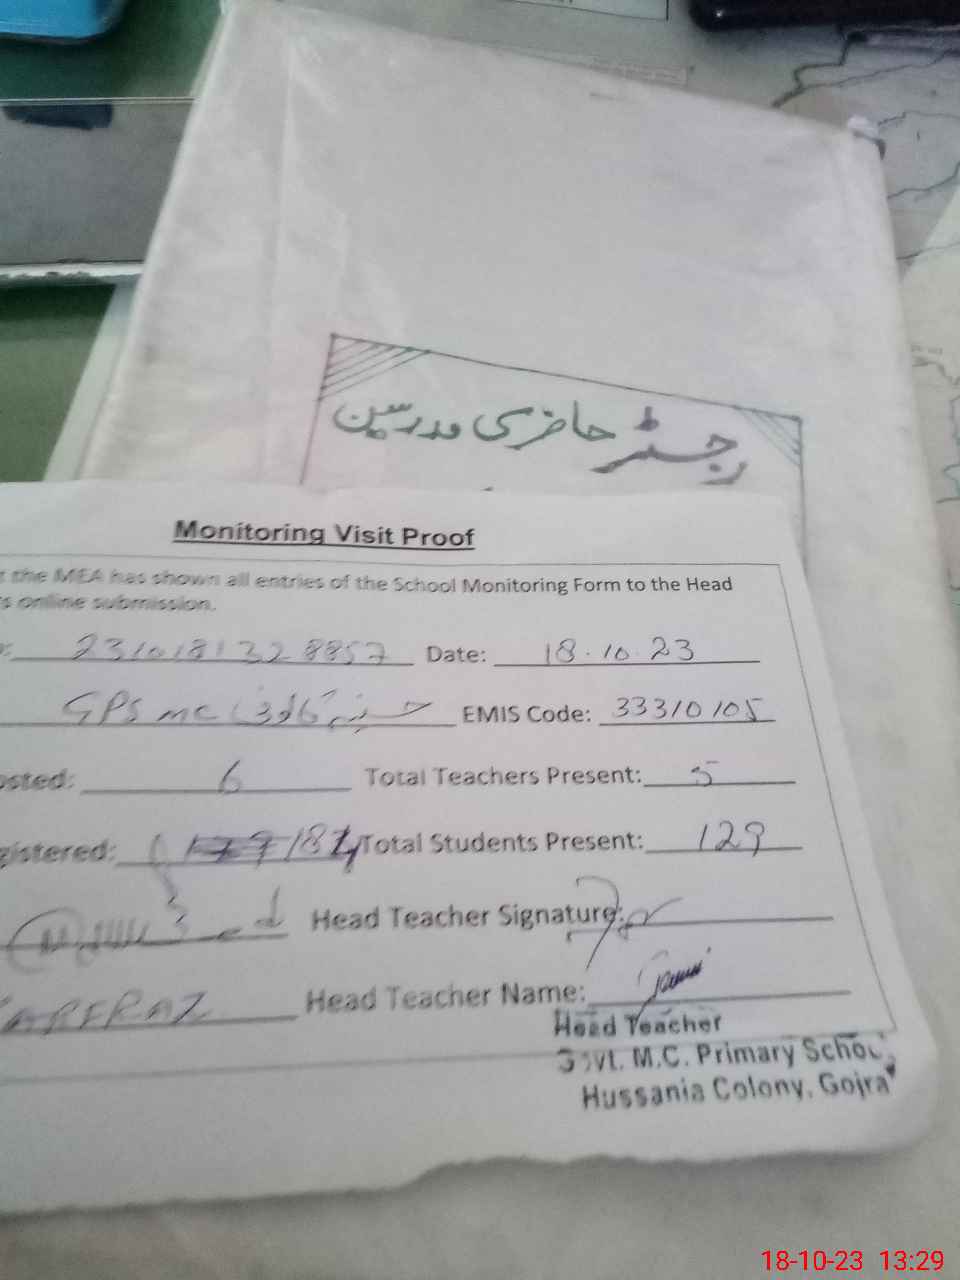 رجسٹر حاضری مدرسین
Monitoring Visit Proof
the MEA has shown all entries of the School Monitoring Form to the Head
online submission.
2310181328857 Date: 18.10.23
GPS MC EMIS Code: 33310105
osted: 6 Total Teachers Present: 5
gistered: 182 Total Students Present: 129
Head Teacher Signature:
Head Teacher Name:
Head Teacher
Govt. M.C. Primary School
Hussania Colony, Gojra
18-10-23 13:29